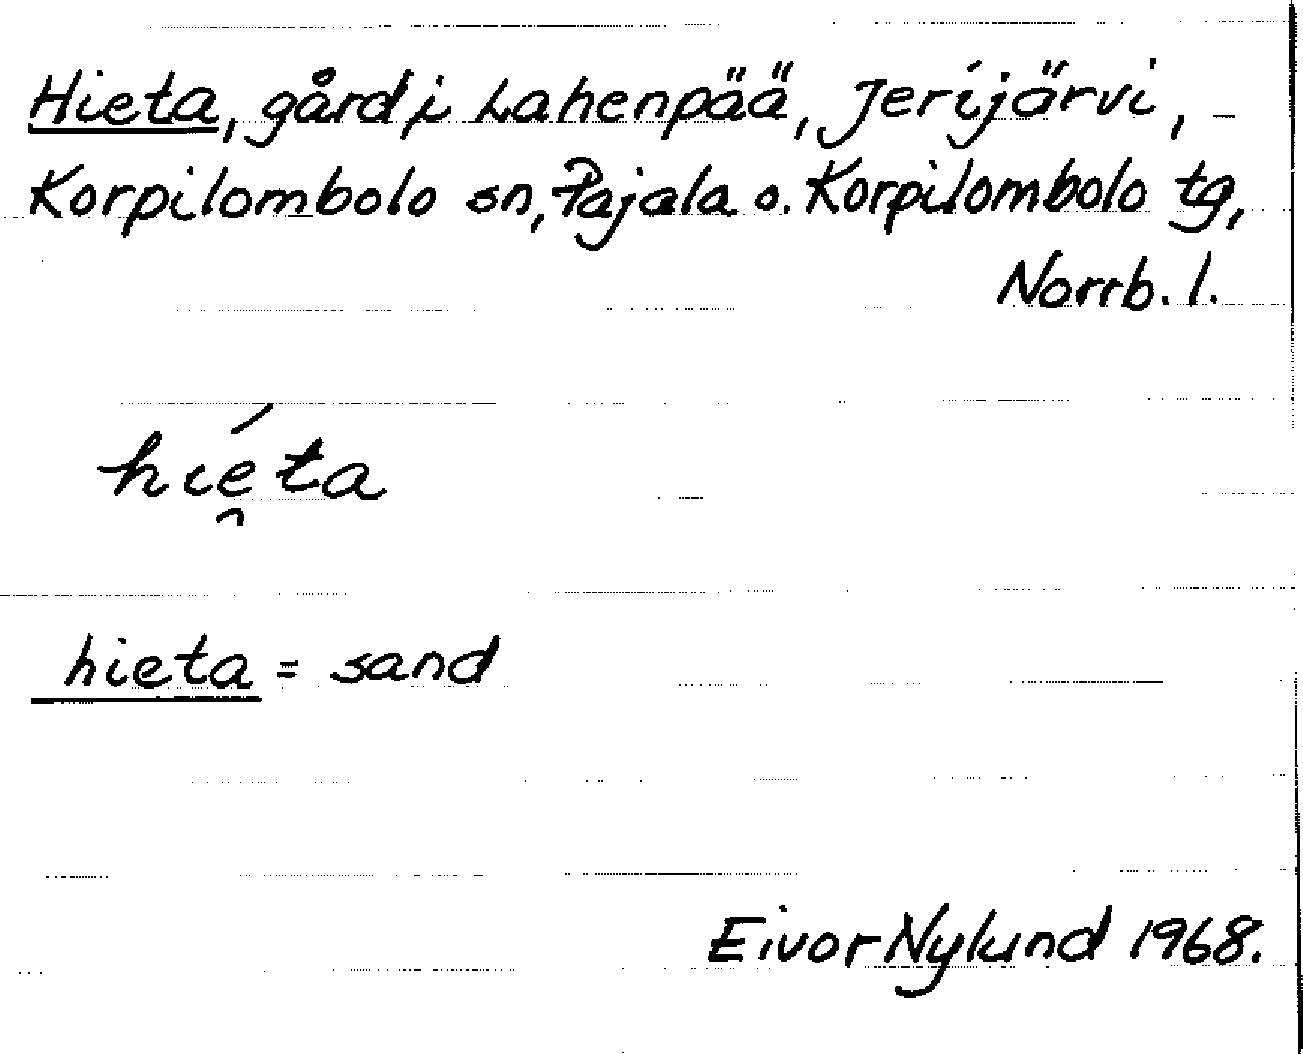 Hieta, gård i Lahenpää, Jerijärvi, -
Korpilombolo sn, Pajala o. Korpilombolo tg,
Norrb. l.
hie̯ta
hieta = sand
Eivor Nylund 1968.